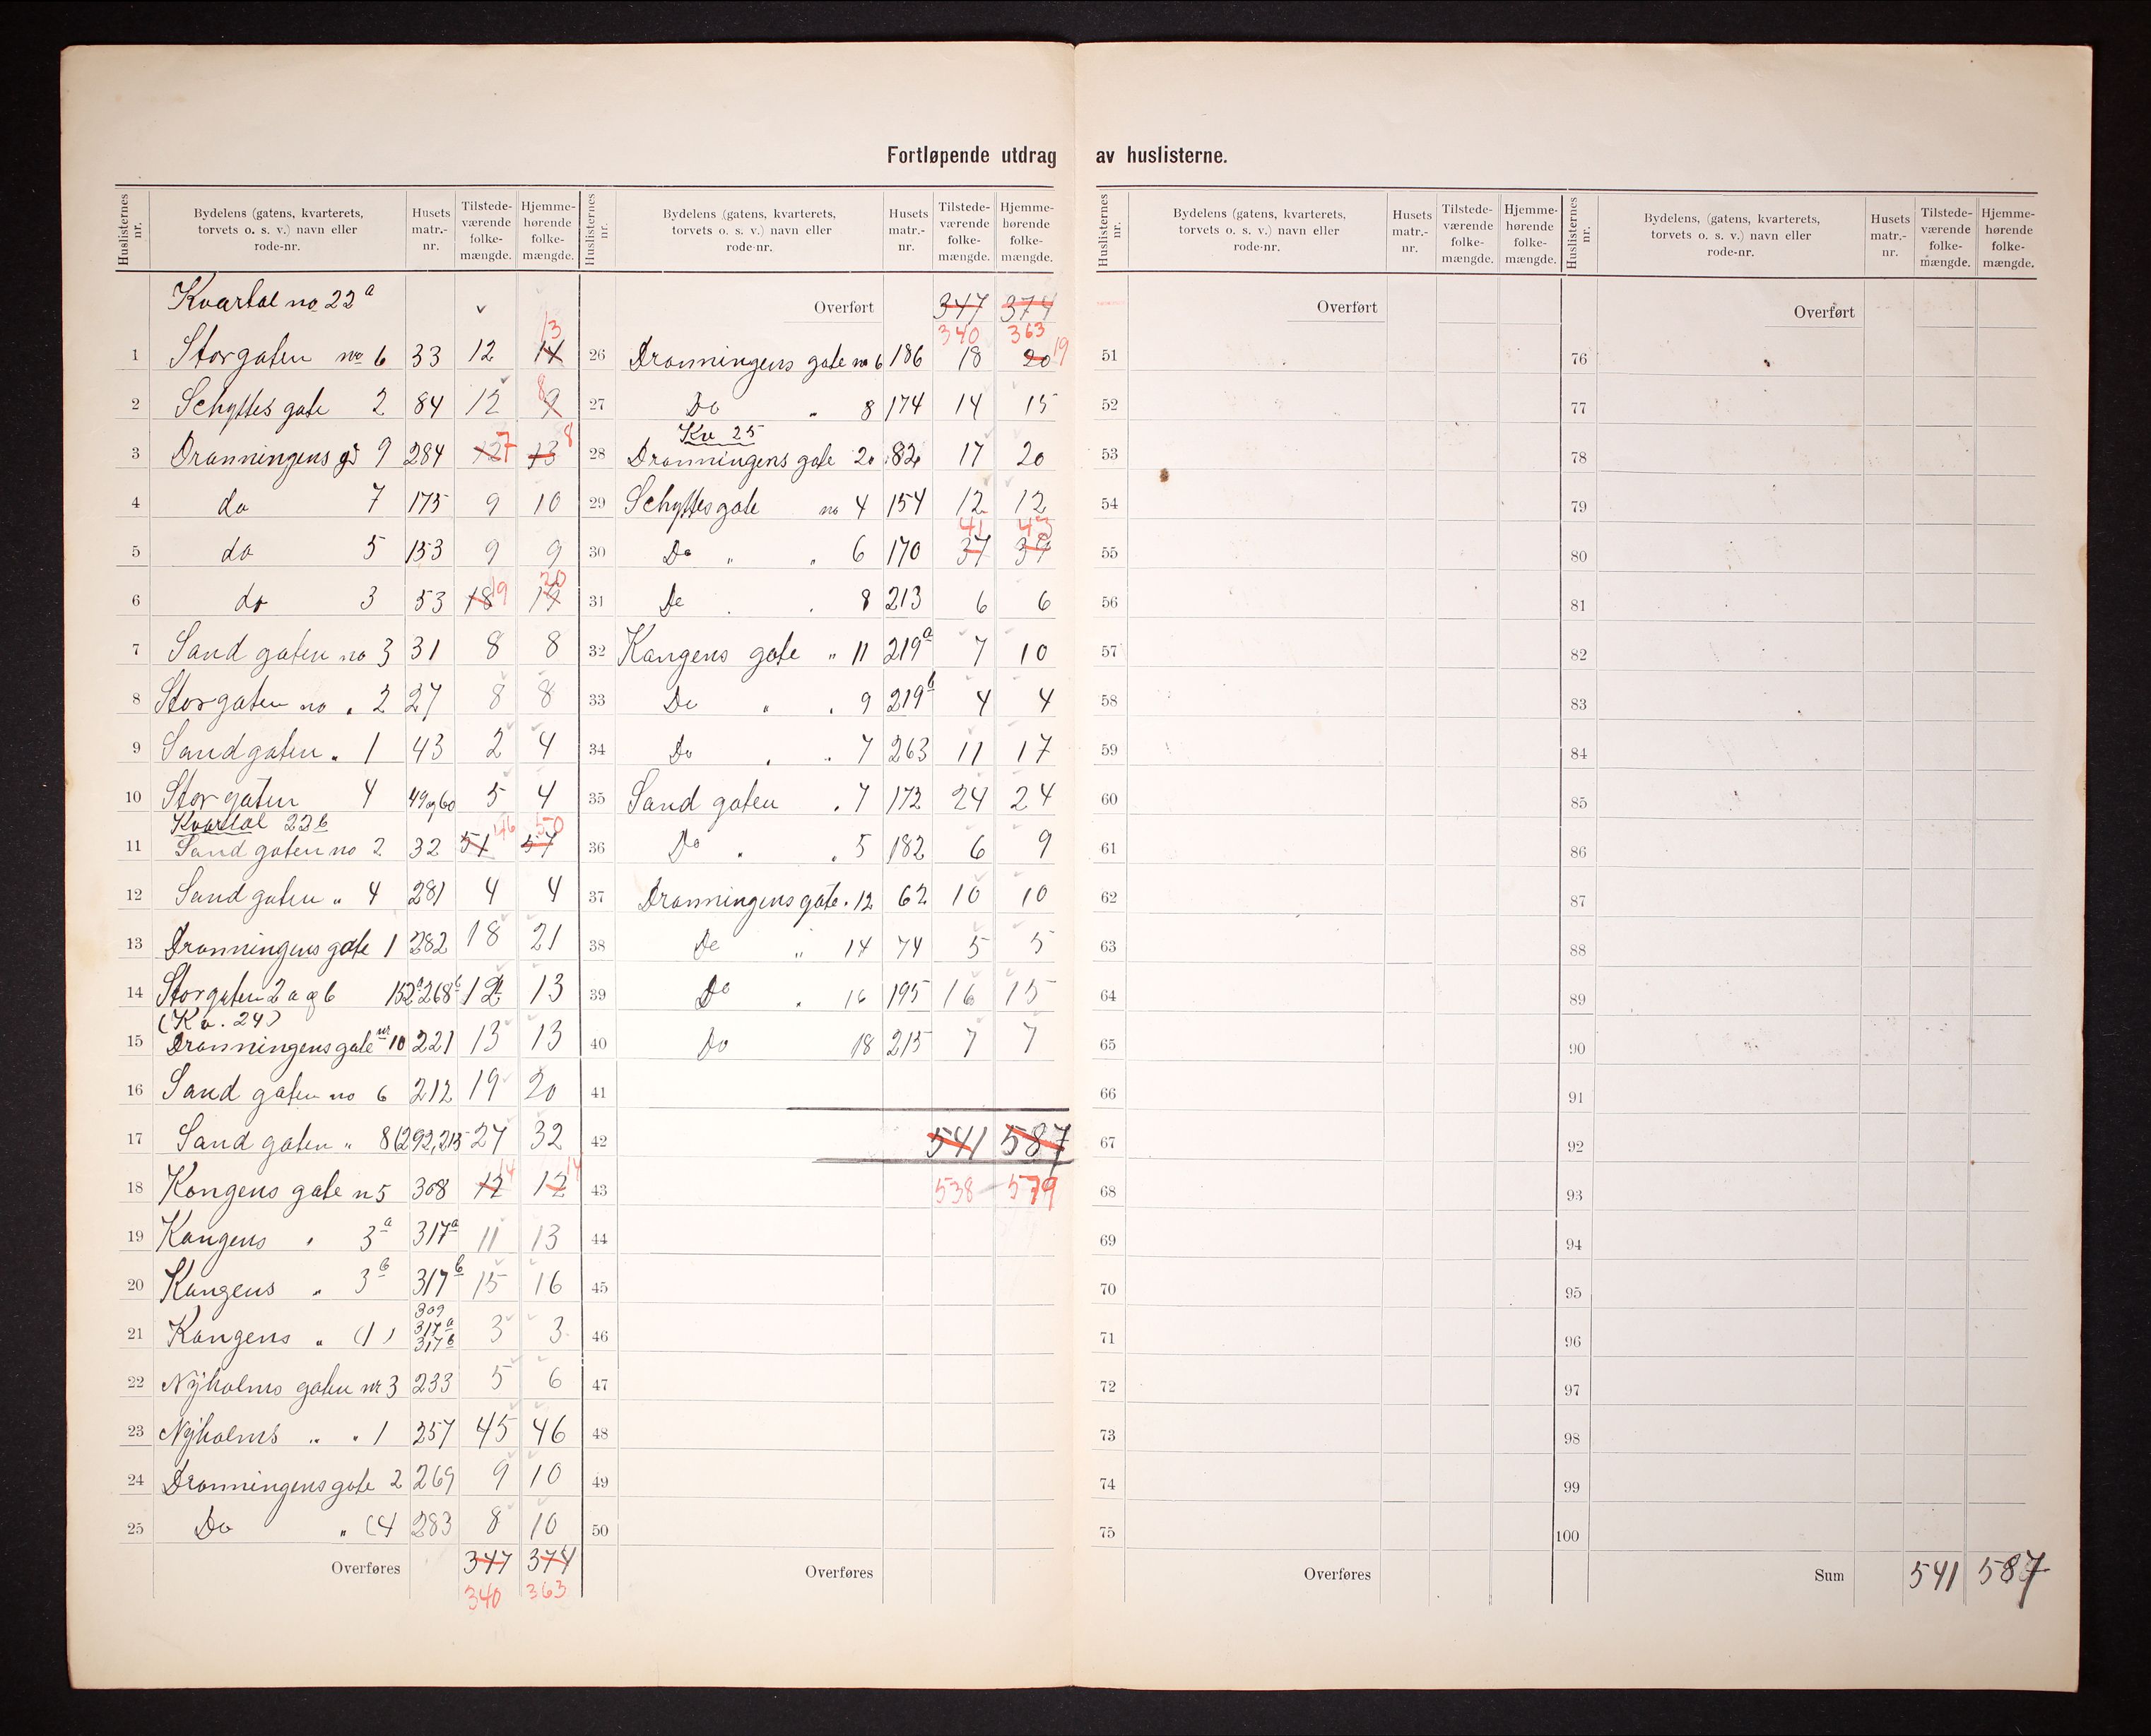 Fortløpende utdrag av huslisterne.
Huslisternes nr. Bydelens (gatens, kvarterets, torvets o. s. v.) navn eller rode-nr. Husets matr.-nr. Tilstede-værende folke-mængde. Hjemme-hørende folke-mængde.
Kvartal no 22a
1 Storgaten no 6 33 12 14 13
2 Schyttes gate 2 84 12 9 8
3 Dronningens g 9 284 12 7 13 8
4 do 7 175 9 10
5 do 5 153 9 9
6 do 3 53 18 19 19 20
7 Sand gaten no 3 31 8 8
8 Storgaten no „ 2 27 8 8
9 Sandgaten „ 1 43 2 4
10 Stor gaten 4 49og60 5 4
Kvartal 22b
11 Sand gaten no 2 32 51 46 57 50
12 Sand gaten „ 4 281 4 4
13 Dronningens gate 1 282 18 21
14 Storgaten 2 a og b 152a 268b 12 13
(Kv. 24)
15 Dronningens gate nr 10 221 13 13
16 Sand gaten no 6 212 19 20
17 Sand gaten „ 8 (292,215 27 32
18 Kongens gate n 5 308 12 14 12 14
19 Kongens „ 3a 317a 11 13
20 Kongens „ 3b 317b 15 16
21 Kongens „ (1) 309 317a 317b 3 3
22 Nyholms gaten nr 3 233 5 6
23 Nyholms „ „ 1 257 45 46
24 Dronningens gate 2 269 9 10
25 Do „ (4 283 8 10
Overføres 347 374
340 363
Huslisternes nr. Bydelens (gatens, kvarterets, torvets o. s. v.) navn eller rode-nr. Husets matr.-nr. Tilstede-værende folke-mængde. Hjemme-hørende folke-mængde.
Overført 347 374
340 363
26 Dronningens gate no 6 186 18 20 19
27 Do „ 8 174 14 15
Kv 25
28 Dronningens gate 20 82 17 20
29 Schyttes gate no 4 154 12 12
30 Do „ „ 6 170 37 41 39 43
31 Do „ „ 8 213 6 6
32 Kongens gate „ 11 219a 7 10
33 Do „ „ 9 219b 4 4
34 Do „ „ 7 263 11 17
35 Sand gaten „ 7 172 24 24
36 Do „ „ 5 182 6 9
37 Dronningens gate „ 12 62 10 10
38 Do „ 14 74 5 5
39 Do „ 16 195 16 15
40 Do 18 215 7 7
41
42 541 587
43 538 – 579
44
45
46
47
48
49
50
Overføres
Huslisternes nr. Bydelens (gatens, kvarterets, torvets o. s. v.) navn eller rode-nr. Husets matr.-nr. Tilstede-værende folke-mængde. Hjemme-hørende folke-mængde.
Overført
51
52
53
54
55
56
57
58
59
60
61
62
63
64
65
66
67
68
69
70
71
72
73
74
75
Overføres
Huslisternes nr. Bydelens, (gatens, kvarterets, torvets o. s. v.) navn eller rode-nr. Husets matr.-nr. Tilstede-værende folke-mængde. Hjemme-hørende folke-mængde.
Overført
76
77
78
79
80
81
82
83
84
85
86
87
88
89
90
91
92
93
94
95
96
97
98
99
100
Sum 541 587